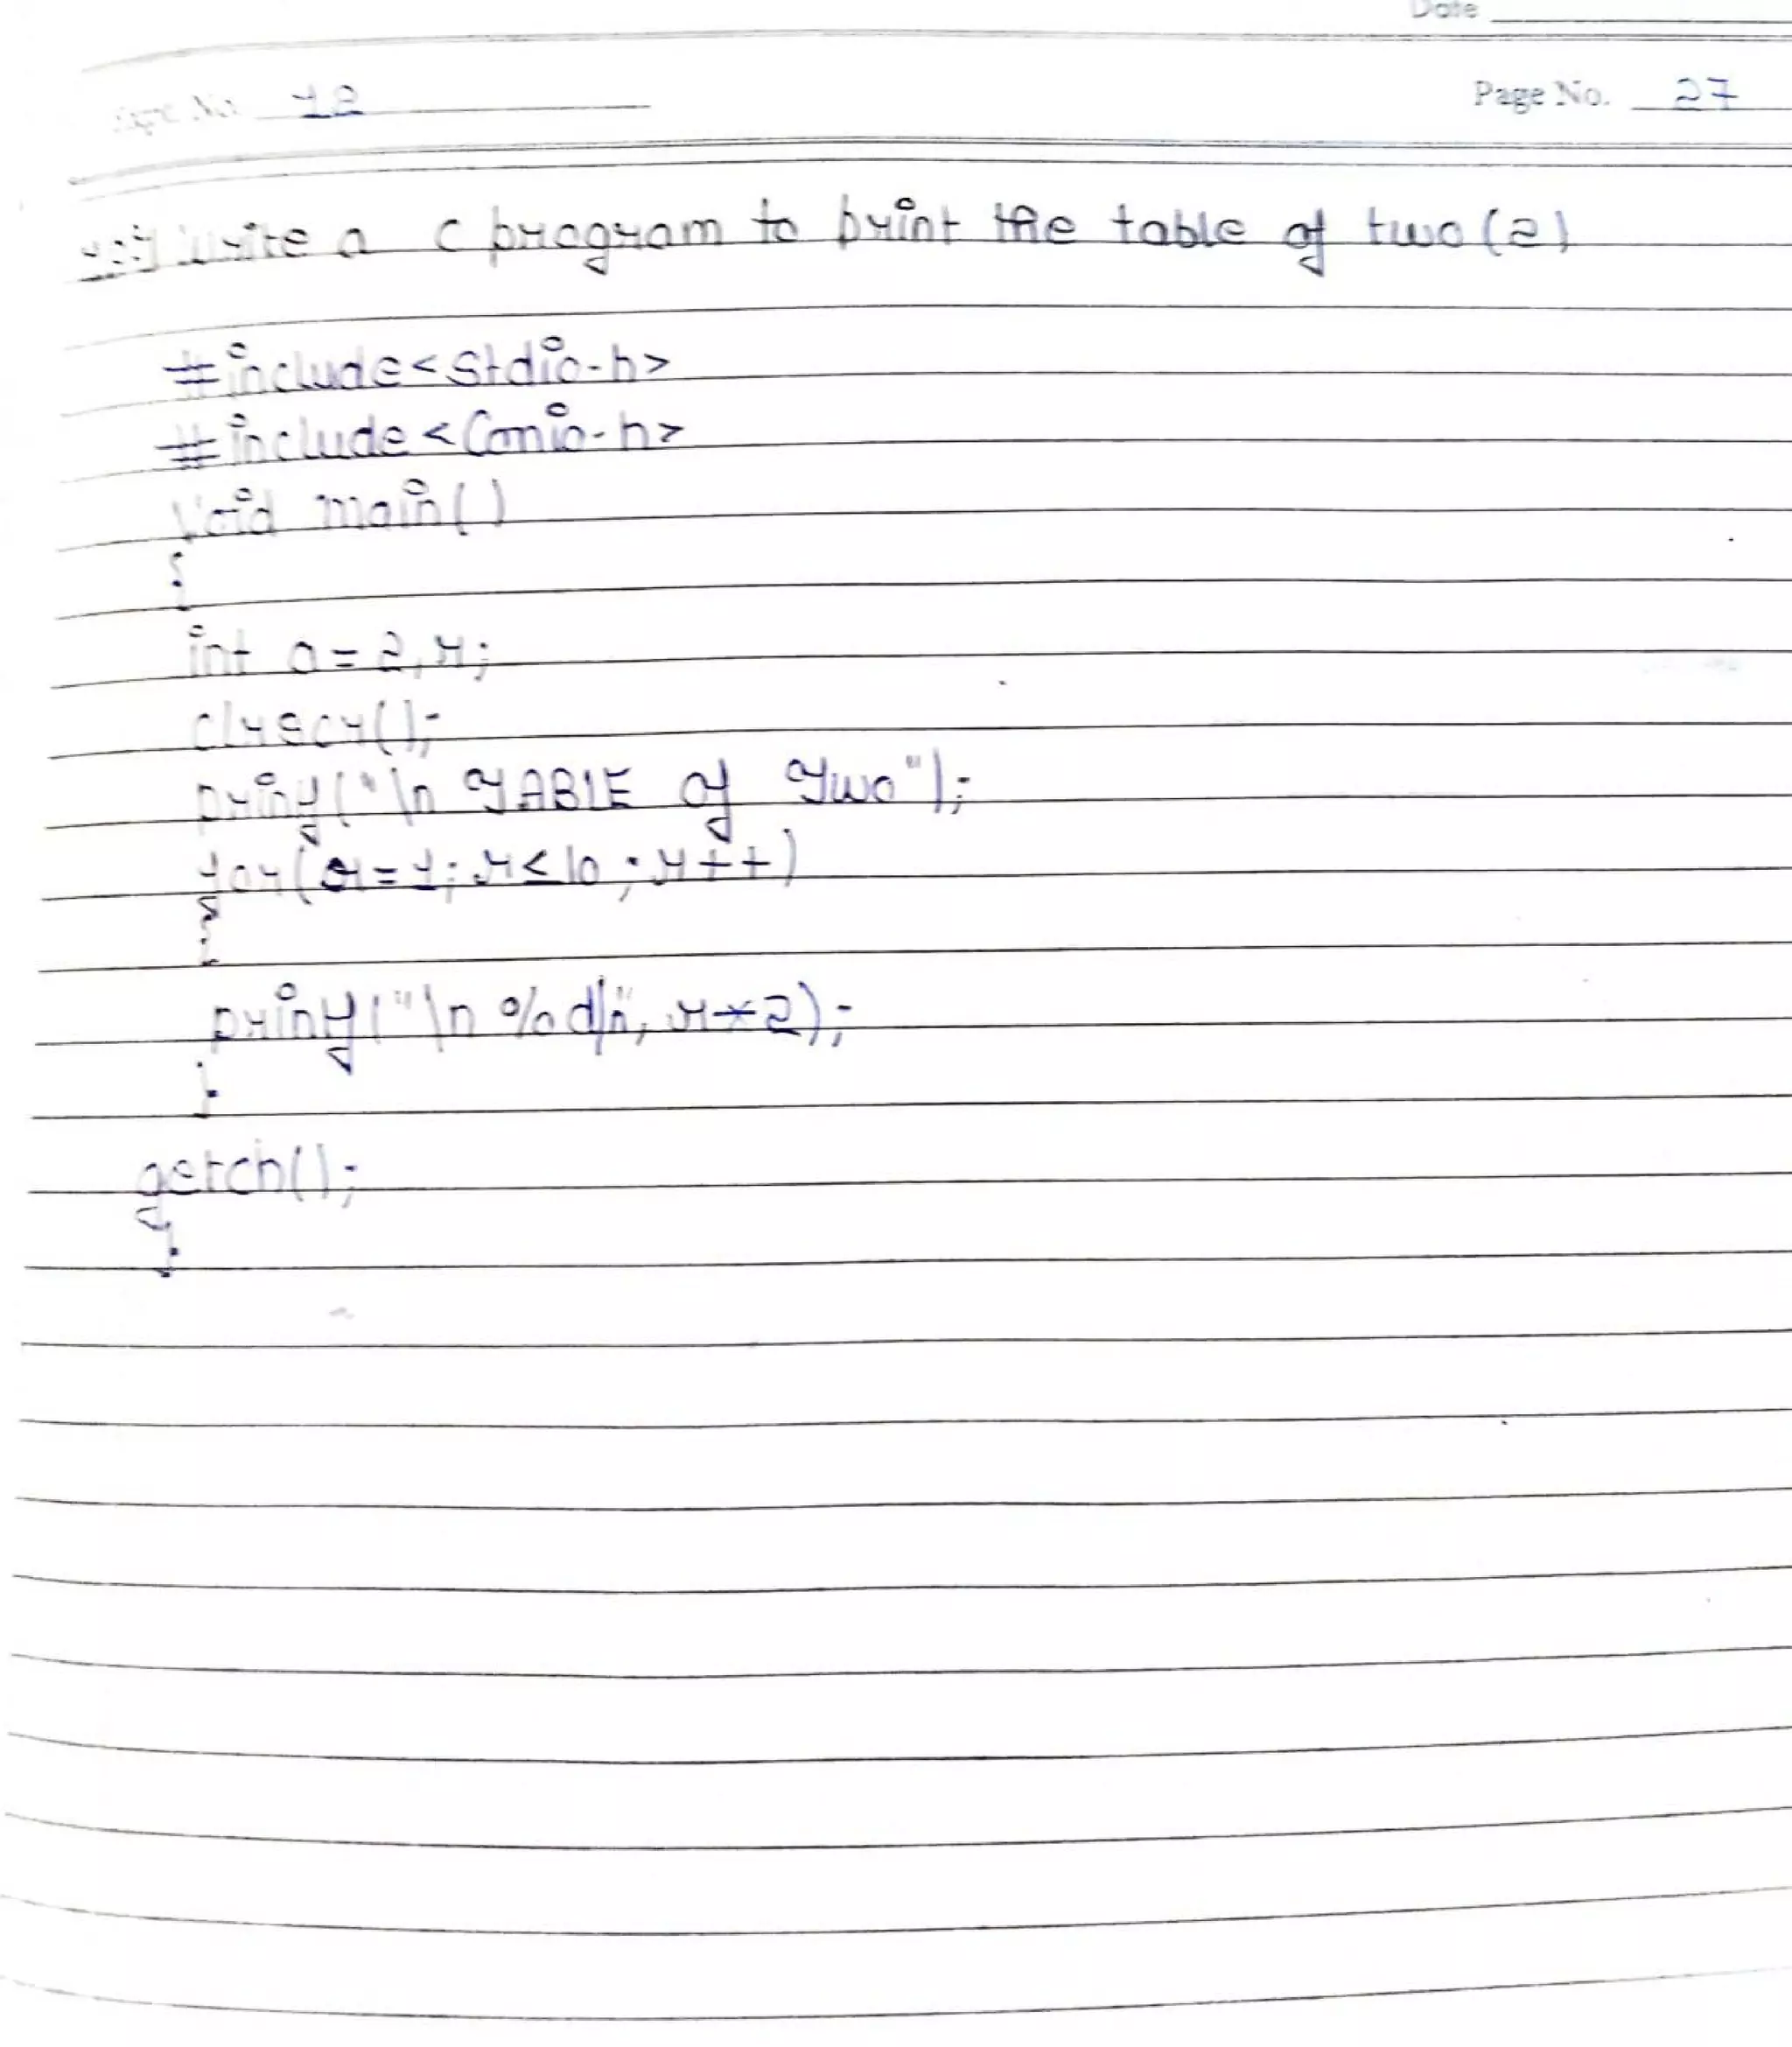 Date
Expt. No. 12
Page No. 27
write a C program to print the table of two (2)
#include<Stdio.h>
#include<Conio.h>
Void main()
{
int a = 2, r;
clrscr();
printf("\n TABLE of Two");
for(r=1; r<10; r++)
{
printf("\n %d\n", r*2);
}
getch();
}